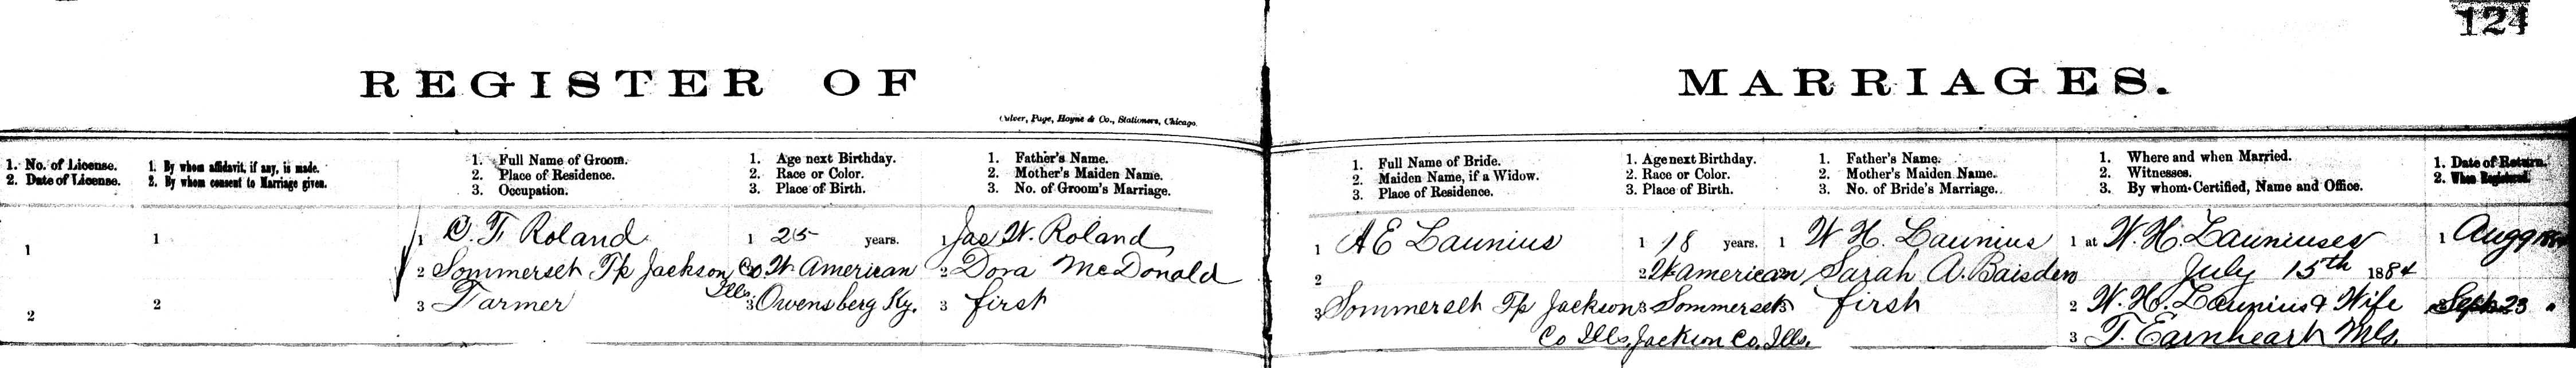 124
REGISTER OF MARRIAGES.
Culver, Page, Hoyne & Co., Stationers, Chicago.
1. No. of License.
2. Date of License.
1. By whom affidavit, if any, is made.
2. By whom consent to Marriage given.
1. Full Name of Groom.
2. Place of Residence.
3. Occupation.
1. Age next Birthday.
2. Race or Color.
3. Place of Birth.
1. Father's Name.
2. Mother's Maiden Name.
3. No. of Groom's Marriage.
1. Full Name of Bride.
2. Maiden Name, if a Widow.
3. Place of Residence.
1. Age next Birthday.
2. Race or Color.
3. Place of Birth.
1. Father's Name.
2. Mother's Maiden Name.
3. No. of Bride's Marriage.
1. Where and when Married.
2. Witnesses.
3. By whom Certified, Name and Office.
1. Date of Return.
2. When Registered.
1
2
1
2
1 C. T. Roland
2 Sommerset Tp Jackson Co
Ills.
3 Farmer
1 25 years.
W American
3 Owensberg Ky.
1 Jas W. Roland
2 Dora McDonald
3 first
1 A E Launius
2
3 Sommerset Tp Jackson
Co Ills.
1 18 years.
2 W american
3 Sommerset
Jackson Co. Ills.
1 W H. Launius
2 Sarah A. Baisden
3 first
1 at W. H. Launiuses
July 15th 1884
2 W. H. Launius & Wife
3 T. Earnheart MG.
1 Aug 9 1884
2 Sept 23 "